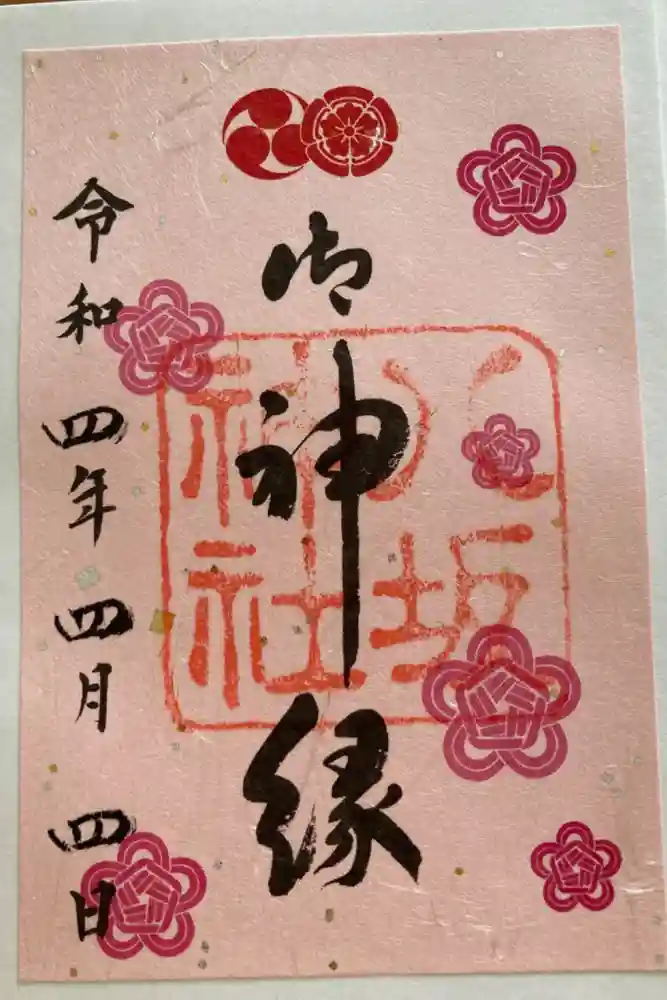 御神縁
八坂神社
令和四年四月四日